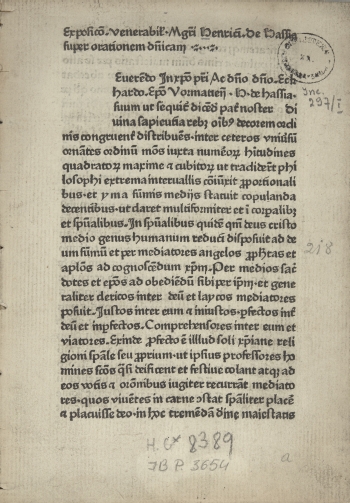 Expositio. venerabil. Mgri Henrici. de Hassia
super orationem dnicam
Everedo In xpo pri Ac dno dno. Eck
hardo. Epo Vormatien. H. de hassia.
suum ut sequit dicend pater noster di
vina sapientia rebz oibz decorem ordi
nis congruent distribues. inter ceteros
ornates ordinu mos iuxta numeor hitudines
quadrator maxime & cubitor ut tradiderut phi
losophi extrema interuallis coiuxit pportionali
bus. et yma sumis medijs statuit copulanda
decentibus. ut claret multiformiter et i corpalibz
et spualibus. In spualibus quide qm deus cristo
medio genus humanum reduci disposuit ad de
um sumu et per mediatores angelos pphetas et
aplos ad cognoscedum xpm. Per medios sac
dotes et epos ad obediedu sibi per ipm. et gene
raliter clericos inter deu et laycos mediatores
posuit. Iustos inter eum & iniustos. pfectos int
deu et inpfectos. Comprehensores inter eum et
viatores. Exinde pfecto e illud soli xpiane reli
gioni spale seu pprium. ut ipsius professores ho
mines scos qsi deificent et festiue colant atqz ad
eos votis & oronibus iugiter recurrat mediato
res. quos viuetes in carne ostat spaliter place
& placuisse deo. in hoc tremeda dine maiestatis
Inc.
297/I
218
H. Gx 8389
JB P. 3654
a